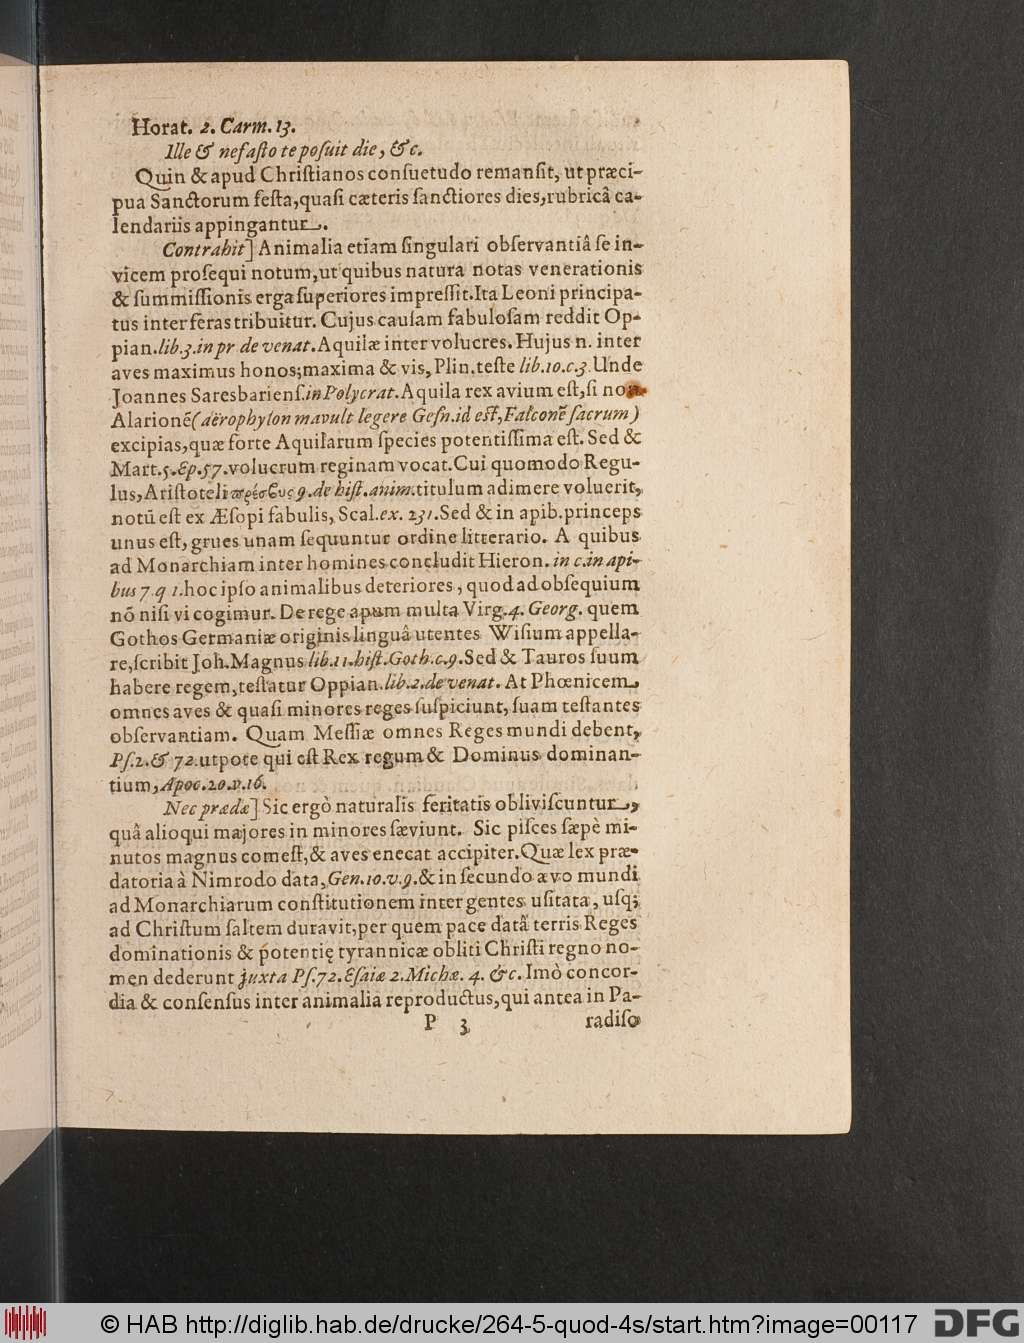 Horat. 2. Carm. 13.
Ille & nefaſto te poſuit die, &c.
Quin & apud Chriſtianos conſuetudo remanſit, ut præci-
pua Sanctorum feſta, quaſi cæteris ſanctiores dies, rubricâ ca-
lendariis appingantur.
Contrahit] Animalia etiam ſingulari obſervantiâ ſe in-
vicem proſequi notum, ut quibus natura notas venerationis
& ſummiſſionis erga ſuperiores impreſſit. Ita Leoni principa-
tus inter feras tribuitur. Cujus cauſam fabuloſam reddit Op-
pian. lib. 3. in pr de venat. Aquilæ inter volucres. Hujus n. inter
aves maximus honos; maxima & vis, Plin. teſte lib. 10. c. 3. Unde
Joannes Saresbarienſ. in Polycrat. Aquila rex avium eſt, ſi non
Alarionẽ (aërophylon mavult legere Geſn. id eſt, Falconẽ ſacrum)
excipias, quæ forte Aquilarum ſpecies potentiſſima eſt. Sed &
Mart. 5. Ep. 57. volucrum reginam vocat. Cui quomodo Regu-
lus, Ariſtoteli πρέσβυς 9. de hiſt. anim. titulum adimere voluerit,
notũ eſt ex Æſopi fabulis, Scal. ex. 231. Sed & in apib. princeps
unus eſt, grues unam ſequuntur ordine litterario. A quibus
ad Monarchiam inter homines concludit Hieron. in c. in api-
bus 7. q 1. hoc ipſo animalibus deteriores, quod ad obſequium
nõ niſi vi cogimur. De rege apum multa Virg. 4. Georg. quem
Gothos Germaniæ originis linguâ utentes Wiſium appella-
re, ſcribit Joh. Magnus lib. 11. hiſt. Goth. c. 9. Sed & Tauros ſuum
habere regem, teſtatur Oppian. lib. 2. de venat. At Phœnicem
omnes aves & quaſi minores reges ſuſpiciunt, ſuam teſtantes
obſervantiam. Quam Meſſiæ omnes Reges mundi debent,
Pſ. 2. & 72. utpote qui eſt Rex regum & Dominus dominan-
tium, Apoc. 20. v. 16.
Nec prædæ] Sic ergò naturalis feritatis obliviſcuntur,
quâ alioqui majores in minores ſæviunt. Sic piſces ſæpè mi-
nutos magnus comeſt, & aves enecat accipiter. Quæ lex præ-
datoria à Nimrodo data, Gen. 10. v. 9. & in ſecundo ævo mundi
ad Monarchiarum conſtitutionem inter gentes uſitata, uſq;
ad Chriſtum ſaltem duravit, per quem pace datâ terris Reges
dominationis & potentię tyrannicæ obliti Chriſti regno no-
men dederunt juxta Pſ. 72. Eſaiæ 2. Michæ. 4. &c. Imò concor-
dia & conſenſus inter animalia reproductus, qui antea in Pa-
P 3 radiſo
© HAB http://diglib.hab.de/drucke/264-5-quod-4s/start.htm?image=00117 DFG